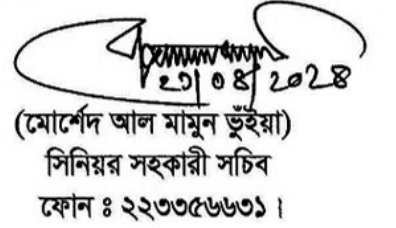 ২১|০৪|২০২৪
(মোর্শেদ আল মামুন ভূঁইয়া)
সিনিয়র সহকারী সচিব
ফোন ঃ ২২৩৩৫৬৬৩১।